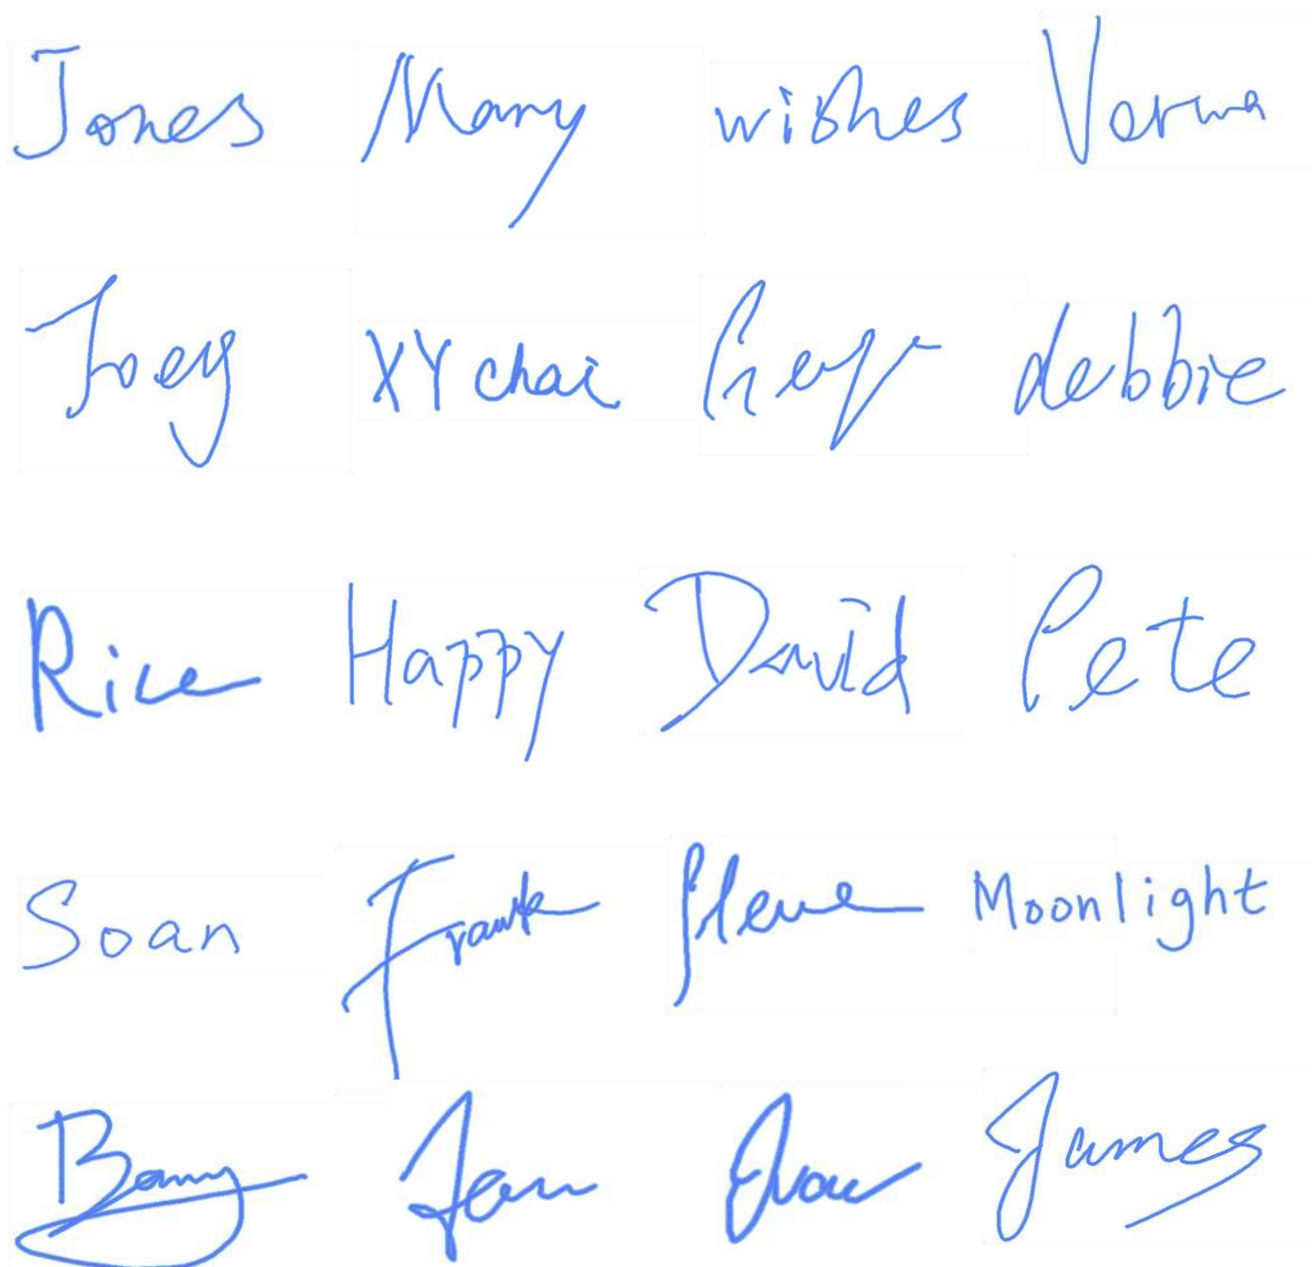 Jones Mary wishes Varma
Joey XY chai debbie
Rice Happy David Pete
Soan Frank Steve Moonlight
Barry James